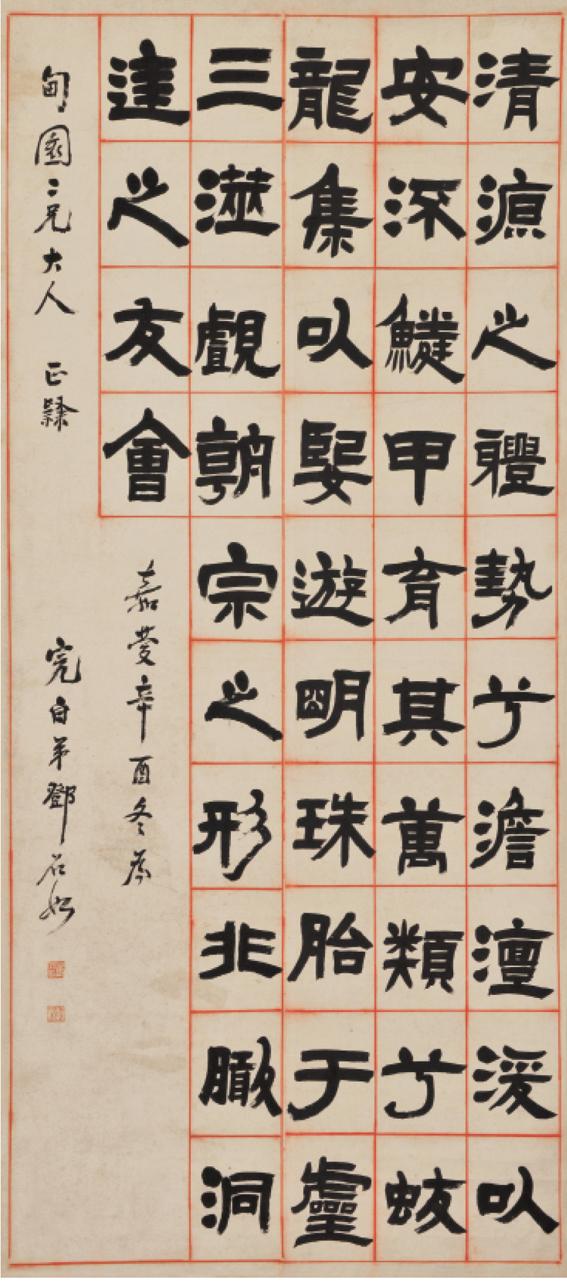 清源之體勢兮澹澶湲以
安流鱗甲育其萬類兮蛟
龍集以嬉遊明珠胎于虛
三澨觀朝宗之形非瞰洞
達之友會
嘉慶辛酉冬為
甸園二兄大人 正隸
完白弟鄧石如